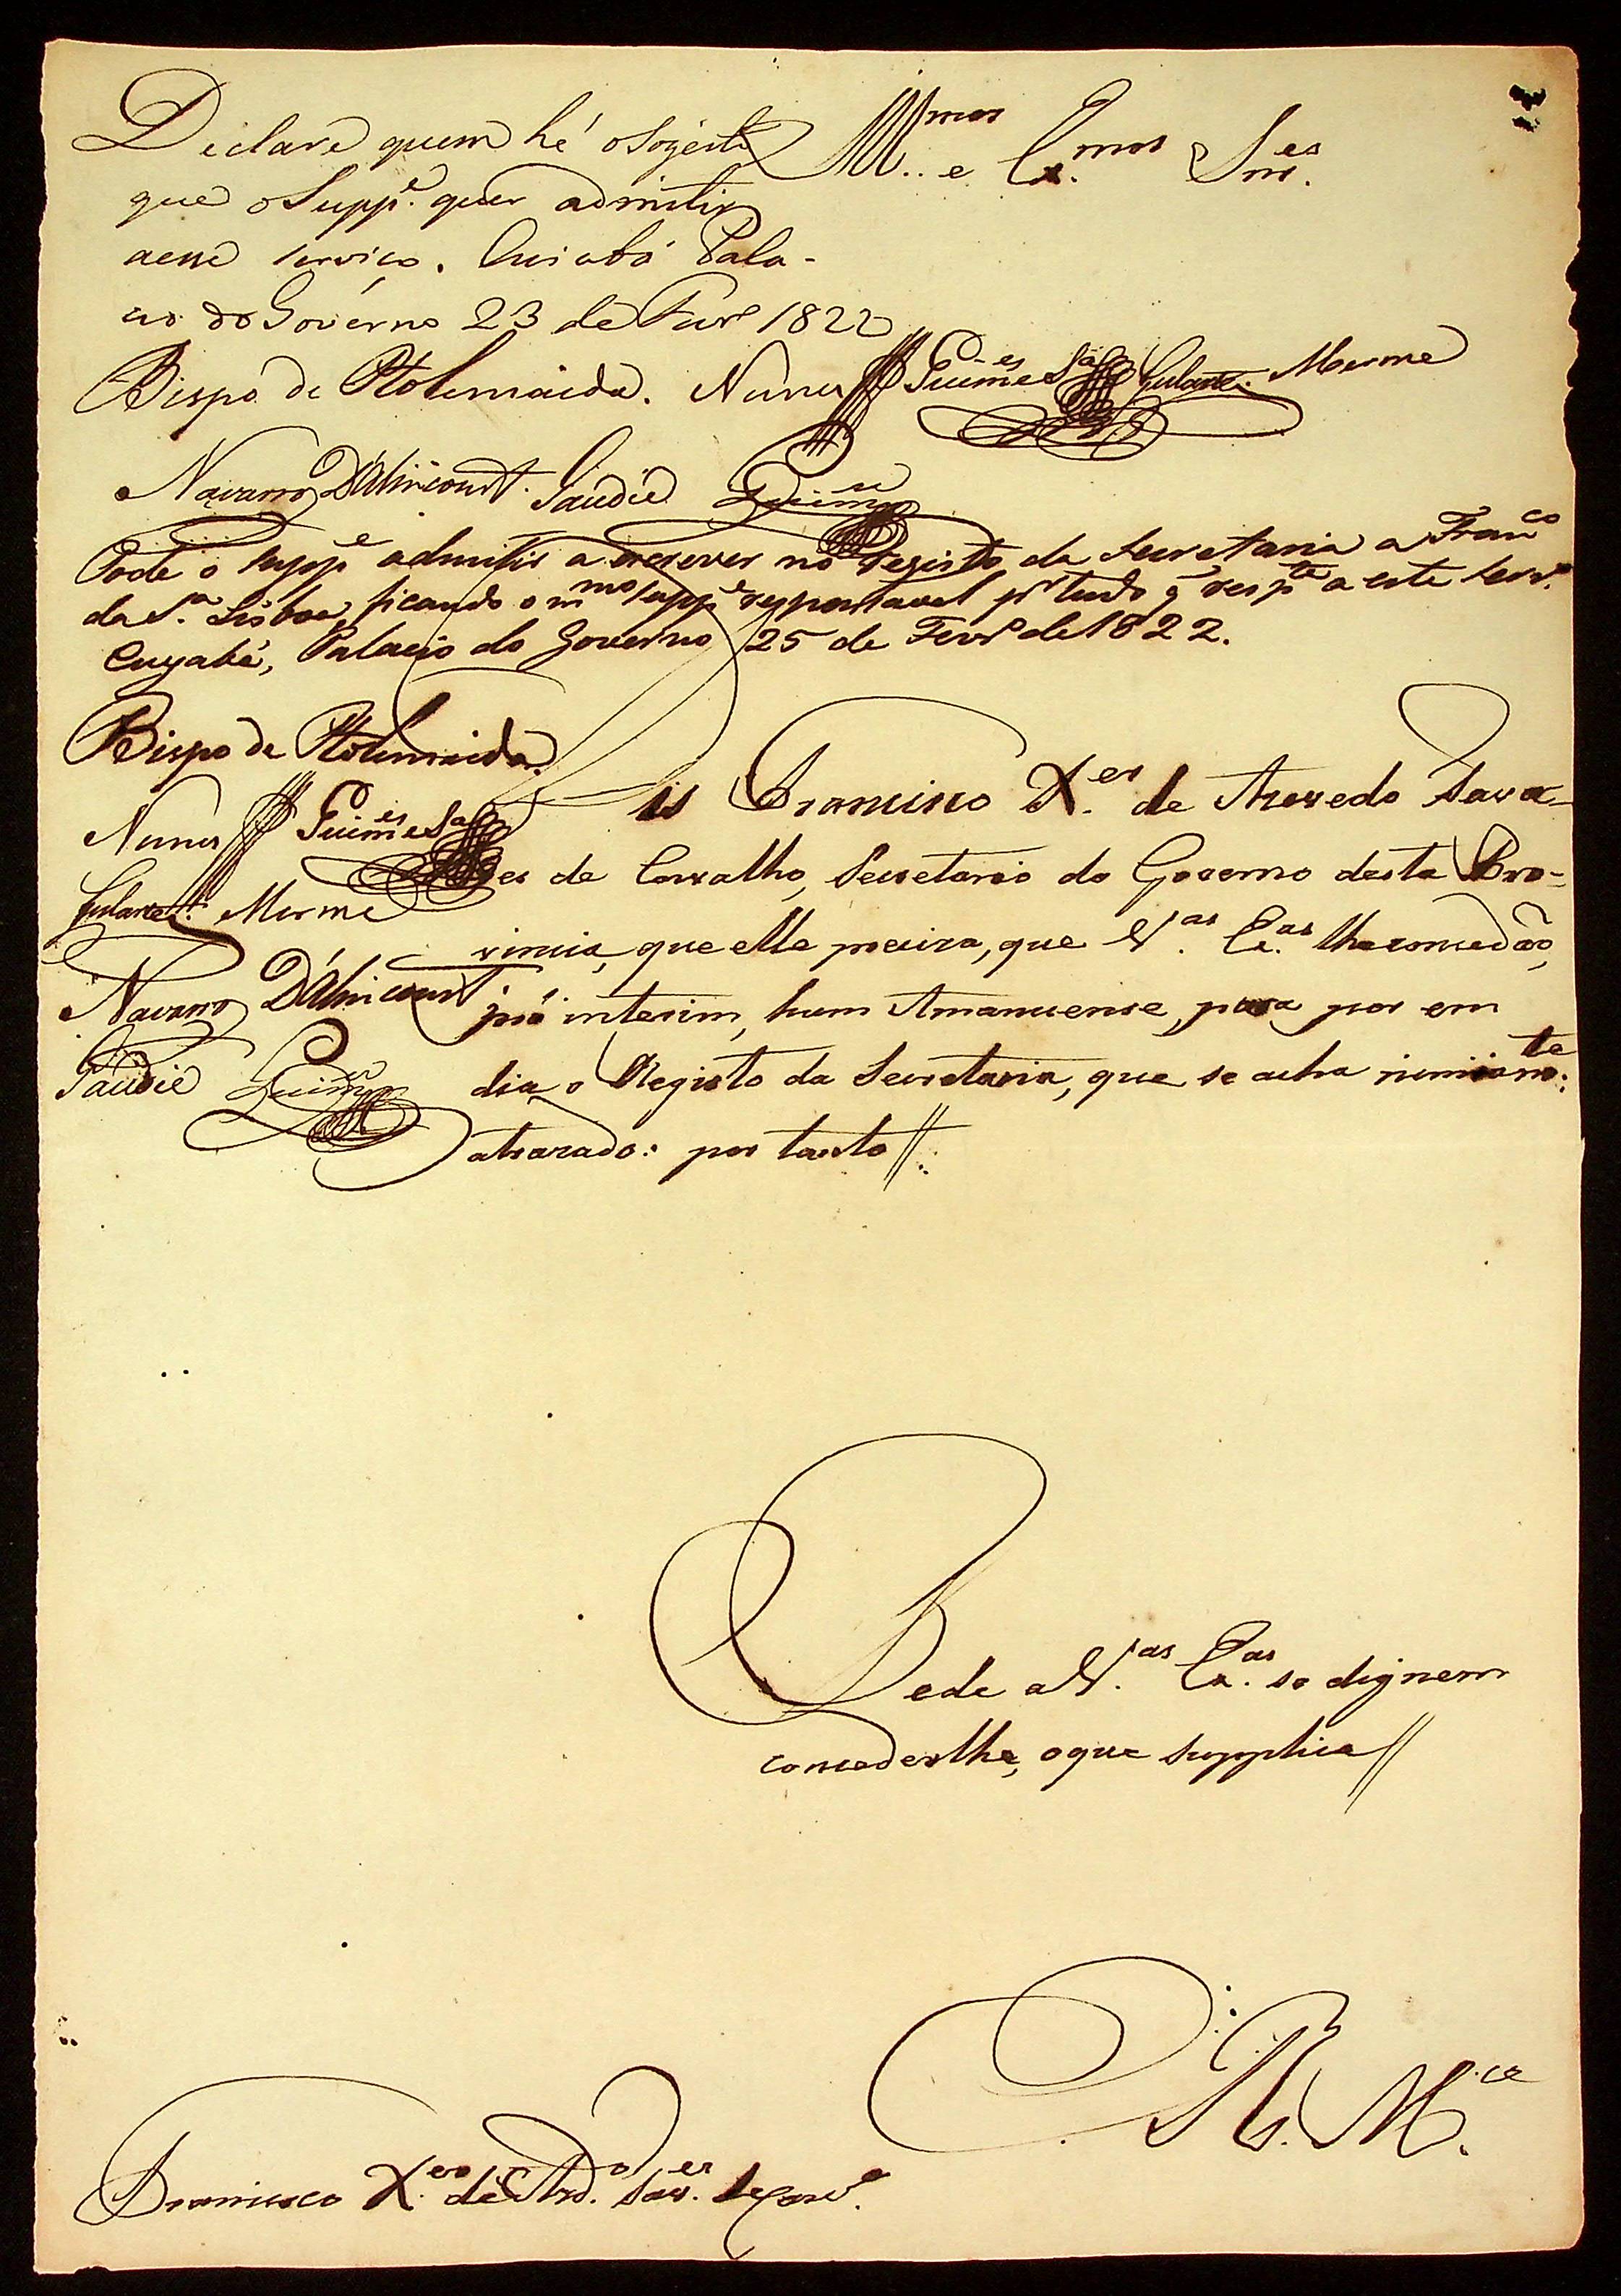 Declare quem hé o Sogeito
que o Supp.e quer admitir
a esse serviço. Cuiabá Pala-
cio do Governo 23 de Fevr.o 1822
Bispo de Ptolemaida. Nunes Guim.es Sa Gularte. Moerme
Navarro D'Alincourt. Gaudie
Ill.mos e Ex.mos Snr.es
Pode o Supp.e admitir a escrever no Registo da Secretaria a Fran.co
da S.a Lisboa, ficando o m.mo Supp.e responsavel p.r tudo q̃ resp.ta a este serv.o
Cuyabá, Palacio do Governo 25 de Fevr.o de 1822.
Bispo de Ptolemaida.
Nunes Guim.es Sa
Gularte. Moerme
Navarro D'Alincourt
Gaudie
Diz Francisco X.er de Azevedo Tava-
res de Carvalho, Secretario do Governo desta Pro-
vincia, que elle preciza, que V.as Ex.as lhe concedão,
pró interim, hum Amanuense, para por em
dia o Registo da Secretaria, que se acha nimiam.te
atrazado: por tanto //
Pede a V.as Ex.as se dignem
concederlhe, o que supplica //
E. R. M.ce
Francisco X.er de Azd.o Tav.es de Carv.o